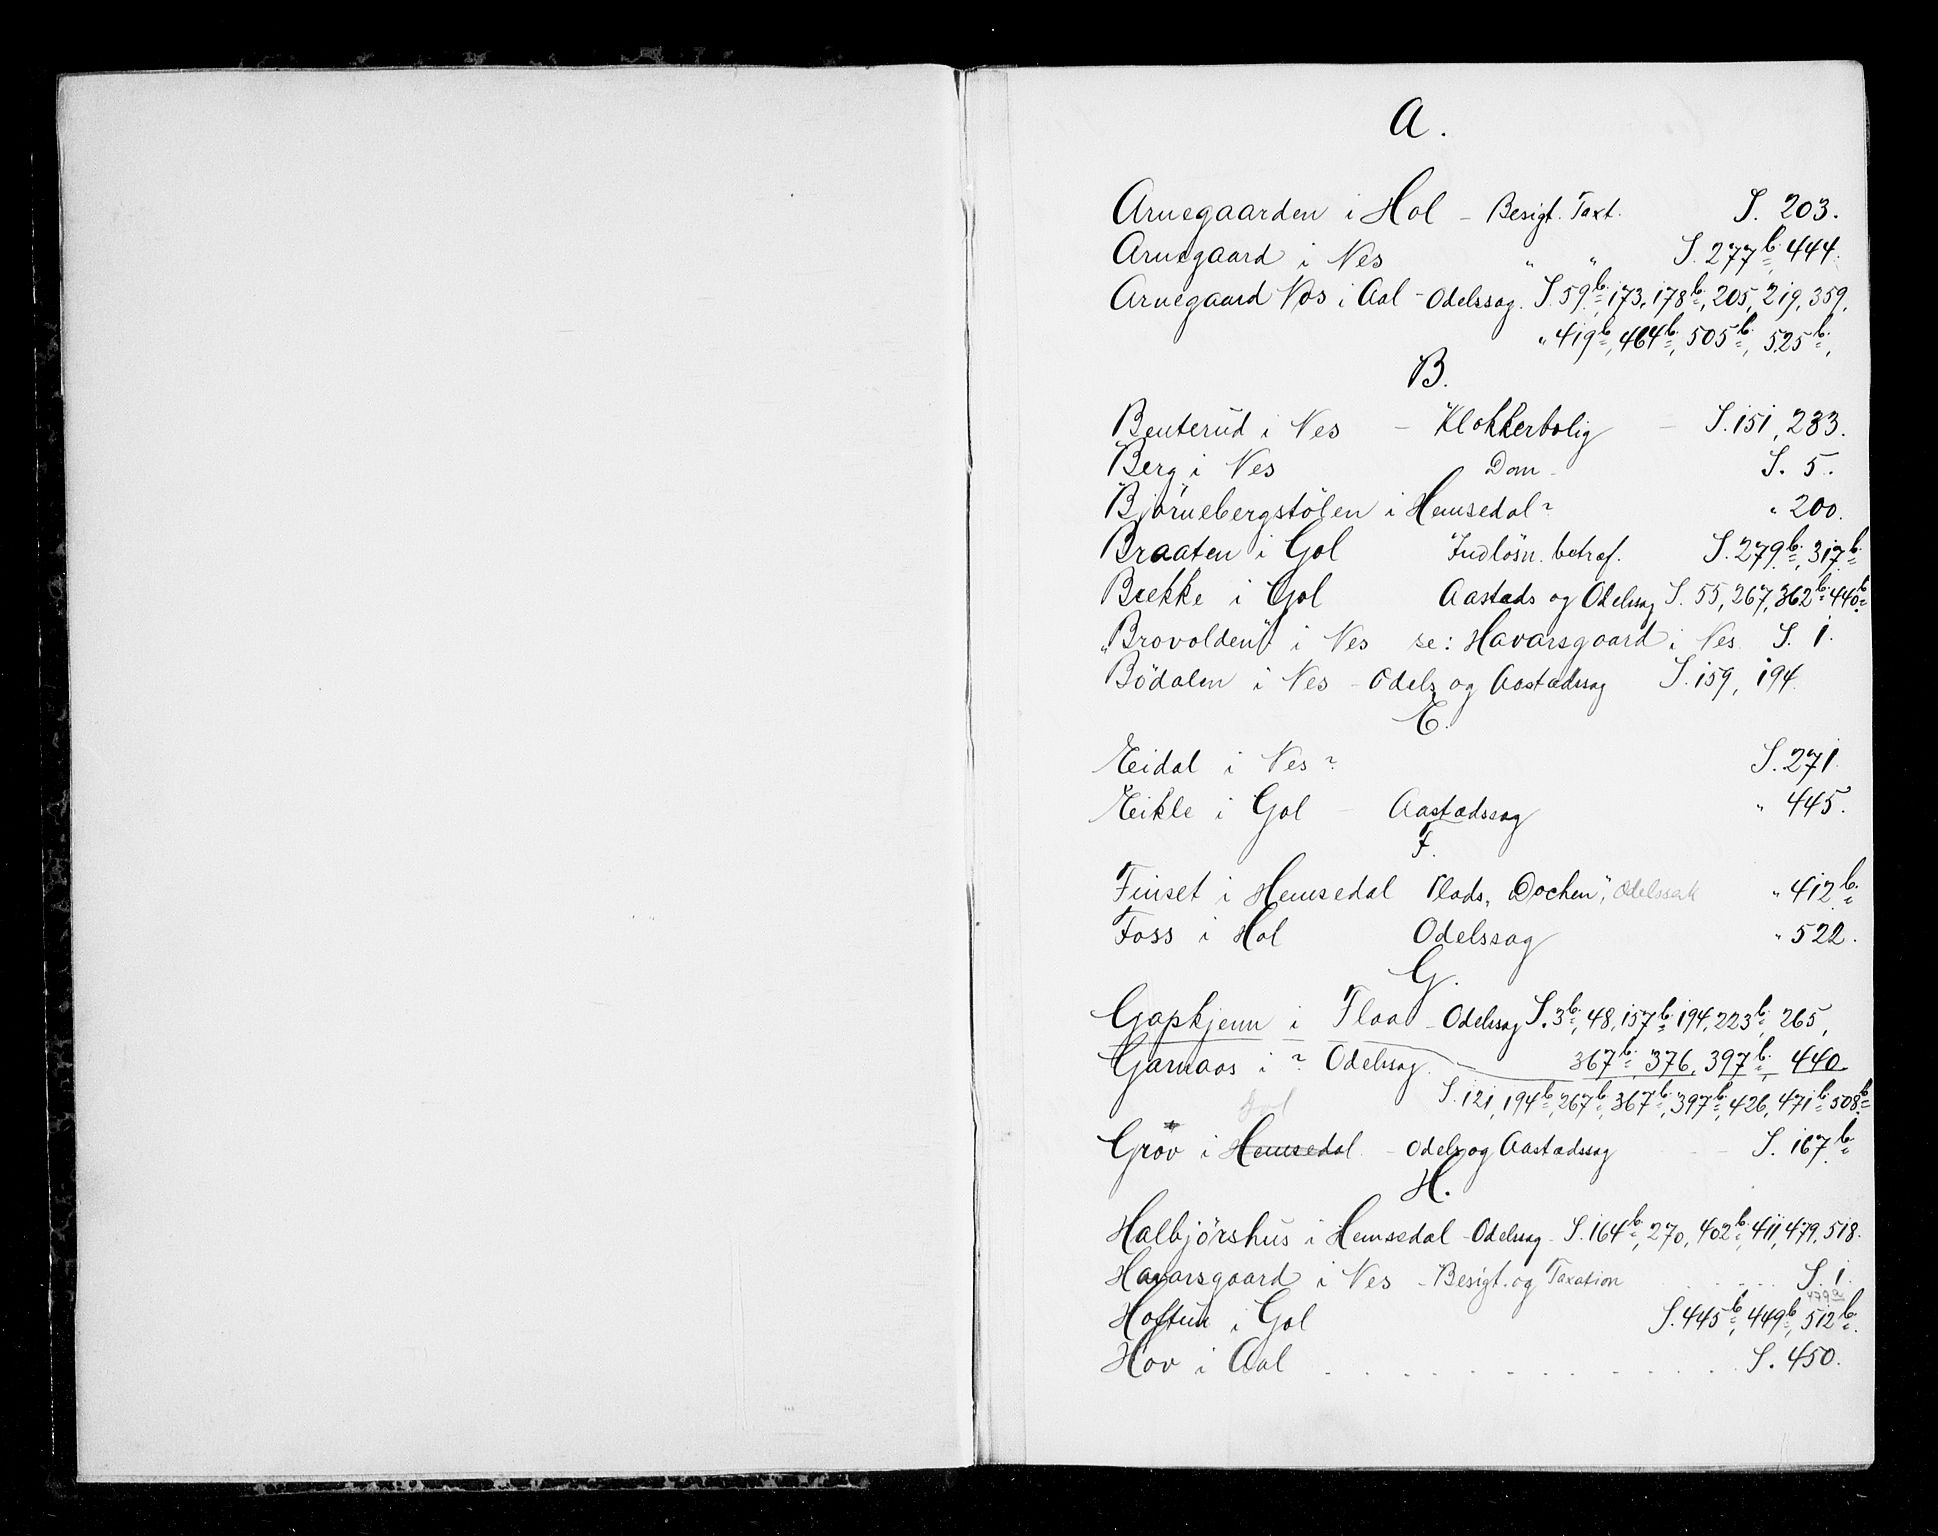 A.
Arnegaarden i Hol - Besigt. Taxt. S. 203.
Arnegaard i Nes " " S. 277b. 444.
Arnegaard Nos i Aal - Odelssag. S. 59b, 173, 178b, 205, 219, 359,
" 419b, 464b, 505b, 525b.
B.
Benterud i Nes - Klokkerbolig - S. 151, 233.
Berg i Nes Dom - S. 5.
Bjørnebergstölen i Hemsedal? " 200.
Braaten i Gol Indlösn. betræf. S. 279b, 317b
Brekke i Gol Aastads og Odelssag S. 55, 267, 362b, 440b
"Brovolden" i Nes se: Havarsgaard i Nes S. 1.
Bödalen i Nes - Odels og Aastædssag S. 159, 194.
E.
Eidal i Nes? S. 271.
Eikle i Gol - Aastædssag " 445.
F.
Finset i Hemsedal Plads "Dochen", Odelssak " 412b.
Foss i Hol Odelssag " 522.
G.
Gapkjenn i Flaa - Odelssag S. 3b, 48, 157b, 194, 223b, 265,
Garnaas i ? Odelssag. 367b, 376, 397b, 440.
S. 121, 194b, 267b, 367b, 397b, 426, 471b, 508b
Gol
Gröv i Hemsedal. - Odels og Aastædssag S. 167b
H.
Halbjörshus i Hemsedal - Odelssag - S. 164b, 270, 402b, 411, 479, 518.
Havarsgaard i Nes - Besigt. og Taxation S. 1.
479a
Hoftun i Gol S. 445b, 449b, 512b.
Hov i Aal . . . . . . . . . . . . S. 450.